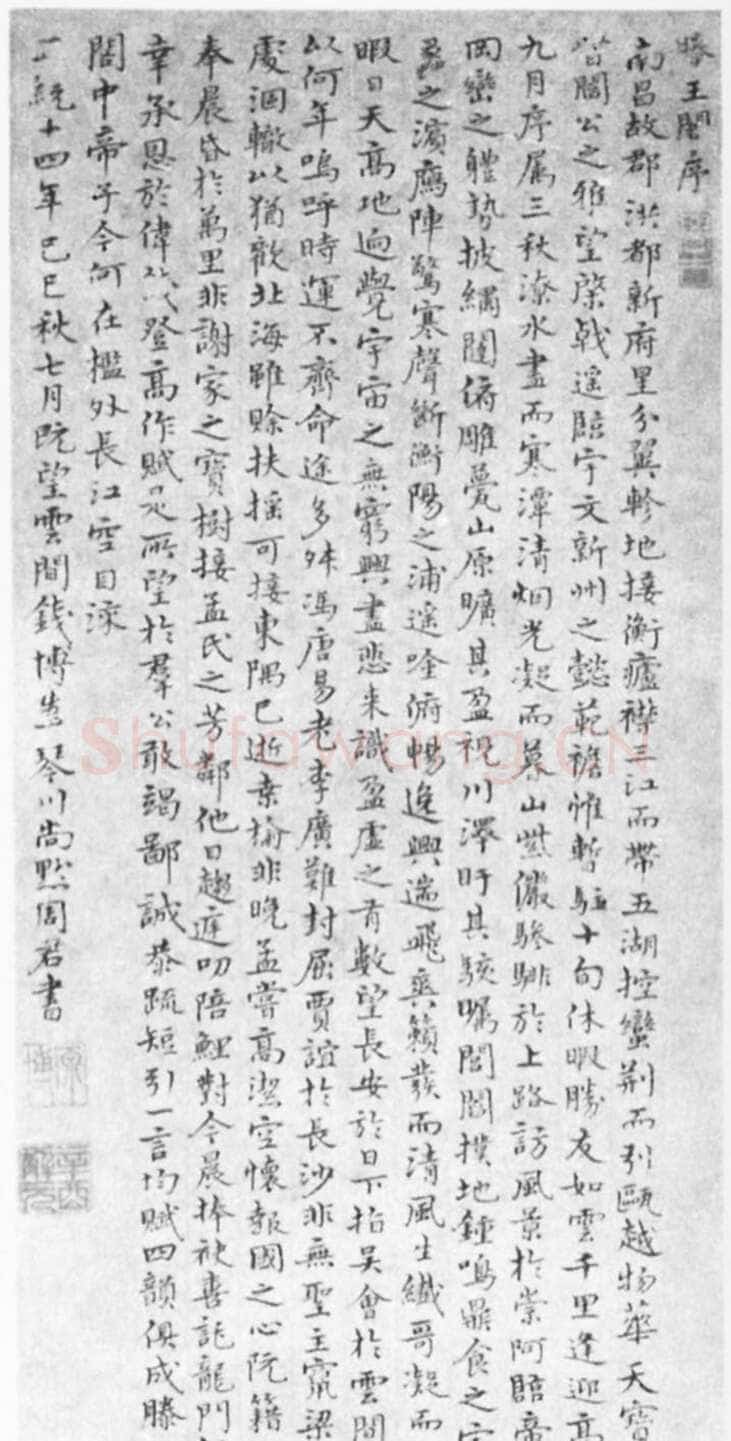 滕王閣序
南昌故郡洪都新府星分翼軫地接衡廬襟三江而帶五湖控蠻荊而引甌越物華天寶
皆閻公之雅望棨戟遥臨宇文新州之懿範襜帷暫駐十旬休暇勝友如雲千里逢迎高
九月序屬三秋潦水盡而寒潭清烟光凝而暮山紫儼驂騑於上路訪風景於崇阿臨帝
岡巒之軆勢披繡闥俯雕甍山原曠其盈視川澤盱其駭矚閭閻撲地鍾鳴鼎食之
蠡之濱鴈陣驚寒聲斷衡陽之浦遥吟俯暢逸興遄飛爽籟發而清風生纖哥凝而
暇日天高地逈覺宇宙之無窮興盡悲来識盈虛之有數望長安於日下指吴會於雲間
以何年嗚呼時運不齊命途多舛馮唐易老李廣難封屈賈誼於長沙非無聖主竄梁
處涸轍以猶歡北海雖賒扶摇可接東隅已逝桒榆非晚孟嘗高潔空懷報國之心阮籍
奉晨昏於萬里非謝家之寶樹接孟氏之芳鄰他日趨庭叨陪鯉對今晨捧袂喜託龍門
幸承恩於偉餞登高作賦是所望於羣公敢竭鄙誠恭疏短引一言均賦四韻俱成滕
閣中帝子今何在檻外長江空自流
正統十四年己巳秋七月既望雲間錢博
Shufawang.CN